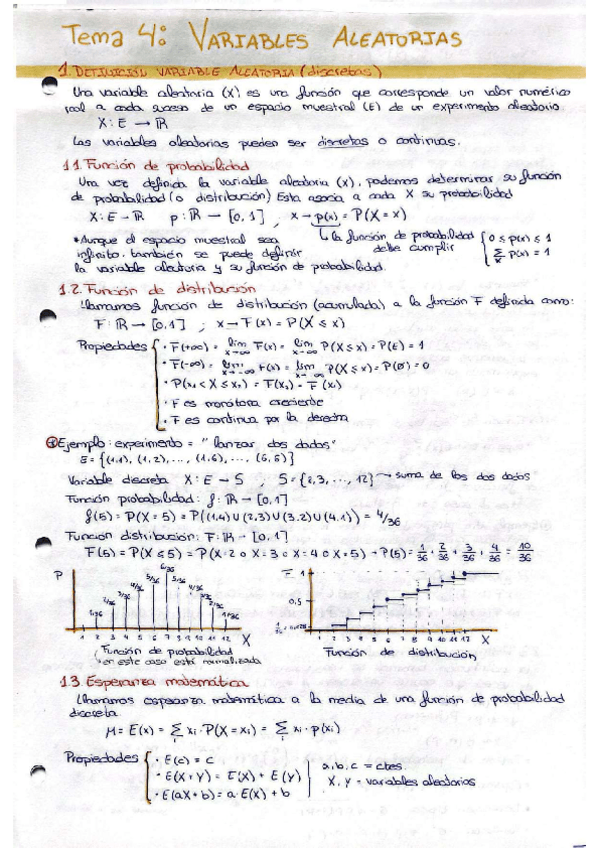 Tema 4: VARIABLES ALEATORIAS
1. DEFINICIÓN VARIABLE ALEATORIA (discretas)
Una variable aleatoria (X) es una función que corresponde un valor numérico
real a cada suceso de un espacio muestral (E) de un experimento aleatorio
X: E → ℝ
Las variables aleatorias pueden ser discretas o continuas.
1.1. Función de probabilidad
Una vez definida la variable aleatoria (X), podemos determinar su función
de probabilidad (o distribución) Esta asocia a cada X su probabilidad
X: E → ℝ p: ℝ → [0,1] , x → p(x) = P(X = x)
* Aunque el espacio muestral sea
infinito, también se puede definir
la variable aleatoria y su función de probabilidad.
↳ la función de probabilidad
debe cumplir
0 ≤ p(x) ≤ 1
Σ p(x) = 1
1.2. Función de distribución
Llamamos función de distribución (acumulada) a la función F definida como:
F: ℝ → [0,1] ; x → F(x) = P(X ≤ x)
Propiedades
· F(+∞) = lim F(x) = lim P(X ≤ x) = P(E) = 1
· F(-∞) = lim F(x) = lim P(X ≤ x) = P(Ø) = 0
· F es monótona creciente
· F es continua por la derecha
Ejemplo: experimento = "lanzar dos dados"
E = {(1,1), (1,2), ..., (1,6), ..., (6,6)}
Variable discreta X: E → S , S = {2,3, ..., 12} → suma de los dos dados
Función probabilidad: f: ℝ → [0,1]
f(5) = P(X = 5) = P((1,4) U (2,3) U (3,2) U (4,1)) = 4/36
Función distribución: F: ℝ → [0,1]
F(5) = P(X ≤ 5) = P(X = 2 o X = 3 o X = 4 o X = 5) → P(5) = 1/36 + 2/36 + 3/36 + 4/36 = 10/36
P
1 2 3 4 5 6 7 8 9 10 11 12 X
Función de probabilidad
en este caso está normalizada
F 1
0,5
1 2 3 4 5 6 7 8 9 10 11 12 X
Función de distribución
1.3. Esperanza matemática
Llamamos esperanza matemática a la media de una función de probabilidad
discreta
μ = E(x) = Σ xi · P(X = xi) = Σ xi · p(xi)
Propiedades
· E(c) = c
· E(X + Y) = E(X) + E(Y)
· E(aX + b) = a · E(X) + b
a, b, c = ctes.
X, Y = variables aleatorias